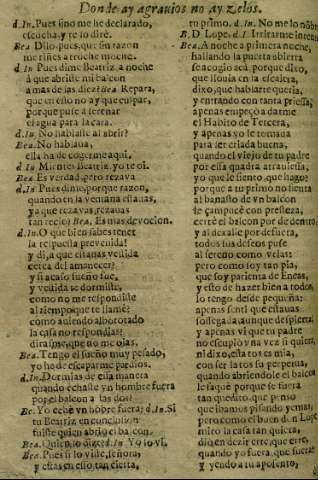 Donde ay agravios no ay zelos.
d.In. Pues sino me he declarado,
escucha, y te lo diré.
Bea. Dilo, pues, que sin razon
me riñes a troche moche.
d.In. Pues dime Beatriz, a noche
á que abriste mi balcon
a mas de las diez? Bea. Repara,
que en esto no ay que culpar,
porque fuese a serenar
el agua para la cara.
d.In. No hablaste al abrir?
Bea. No hablava,
ella ha de cogerme aqui.
d.In Mientes Beatriz, yo te oi.
Bea. Es verdad, pero rezava
d.In Pues dime, porque razon,
quando en la ventana estavas,
ya que rezavas, rezavas
tan recio? Bea. Es mas devocion.
d.In. O que bien sabes tener
la respuesta prevenida!
y di, a que estavas vestida
cerca del amanecer?
y si acaso sueño fue,
y vestida te dormiste,
como no me respondiste
al tiempo que te llamè?
como aviendo alborotado
la casa no respondias?
dirasme, que no me oias.
Bea. Tengo el sueño muy pesado,
yo he de escaparme
d.In. Dormias de essa manera
quando echaste vn hombre fuera
por el balcon a las dos?
Be. Yo echè vn hõbre fuera; d.In. Si
tu Beatriz, en conclusion
fuiste quien abrio el balcon.
Bea. Quien lo dize? d.In Yo lo vi.
Bea. Pues si lo viste, señora,
y estas en esso tan cierta,
tu primo. d.In. No me lo nõbres
B. D. Lope. d.I Irritarme intentas
Bea. A noche a primera noche,
hallando la puerta abierta
se acogió acá, porque dixo,
que llovia en la escalera,
dixo, que hablarte queria,
y entrando con tanta priessa,
apenas empeçó a darme
el Habito de Tercera,
y apenas yo le tomava
para ser criada buena,
quando el viejo de tu padre
por essa quadra atraviessa,
yo que le siento, que hago?
porque a tu primo no sienta
al banasto de vn balcon
le çampuzé con presteza,
cerrè el balcon por de dentro,
y al dexalle por defuera,
todos sus deseos puse
al sereno como velas:
pero como soy tan pia,
que soy parienta de Eneas,
y esto de hazer bien a todos,
lo tengo desde pequeña:
apenas senti que estavas
sossegada, aunque despierta,
y apenas vi que tu padre
no escupio vna vez si quiera,
ni dixo, esta tos es mia,
con ser la tos su perpetua,
quando abriendole el balcon
le saquè porque se fuera
tan quedito, que penso
que ibamos pisando yemas,
pero como el buen don Lope
miro la casa tan quieta,
dió en dezir erre, que erre,
quando yo fuera, que fuera:
y yendo a tu aposento,